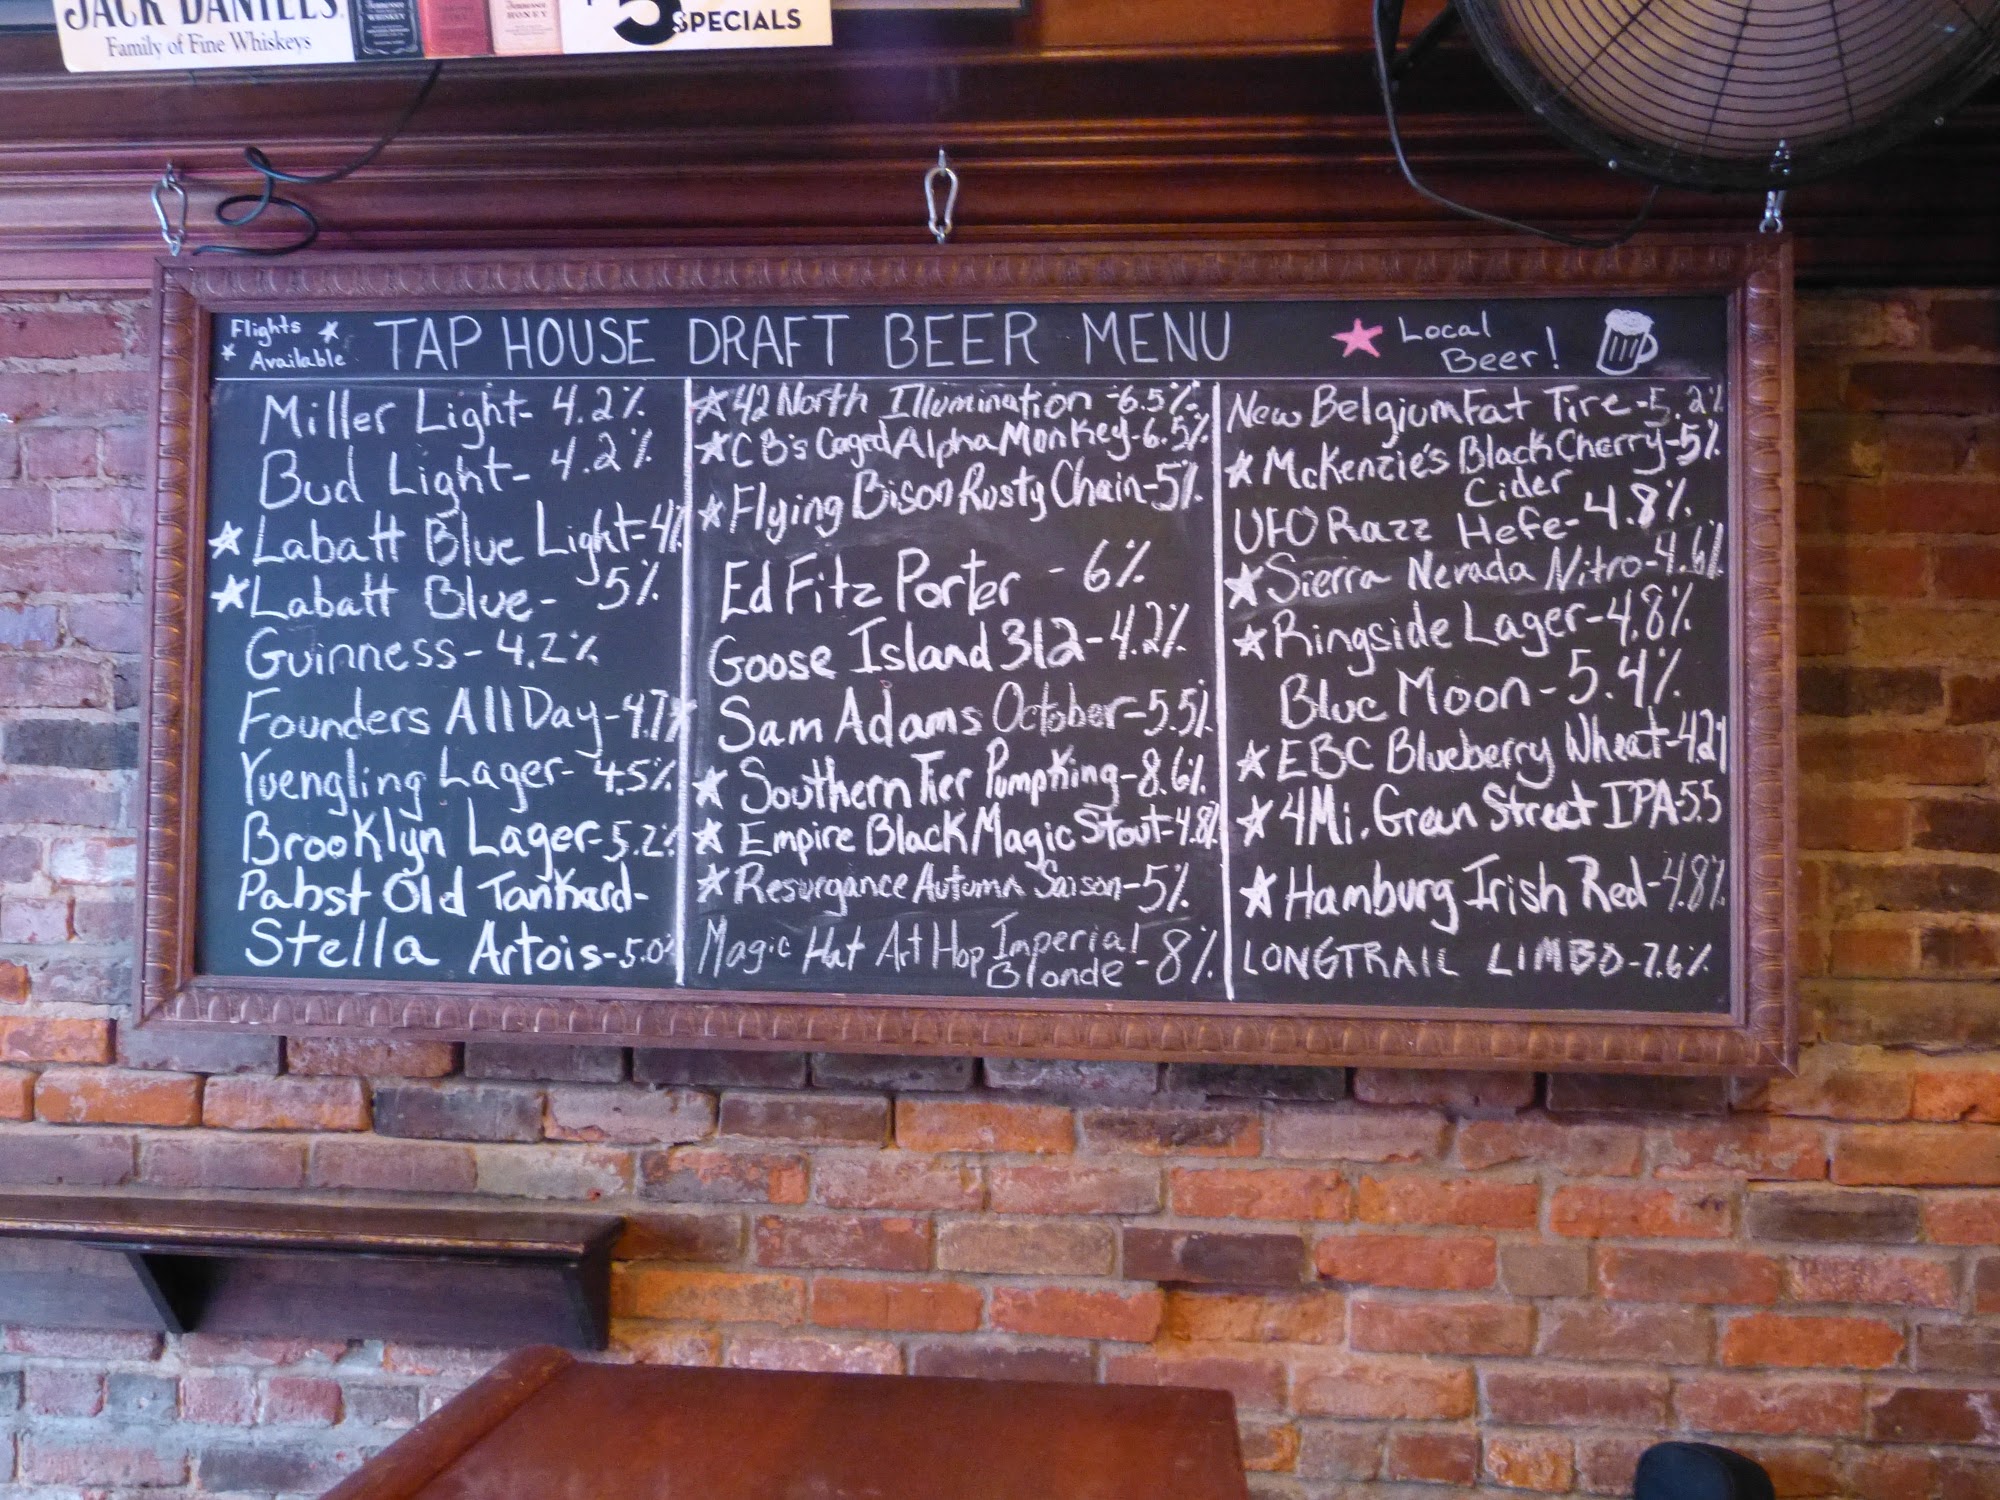 JACK DANIEL'S
Family of Fine Whiskeys
Tennessee WHISKEY
Tennessee HONEY
5 SPECIALS
Flights
Available
TAP HOUSE DRAFT BEER MENU
Local
Beer!
Miller Light- 4.2%
Bud Light- 4.2%
Labatt Blue Light-4%
Labatt Blue- 5%
Guinness- 4.2%
Founders All Day-4.7%
Yuengling Lager- 4.5%
Brooklyn Lager-5.2%
Pabst Old Tankard-
Stella Artois-5.0%
42 North Illumination -6.5%
CB's Caged Alpha Monkey-6.5%
Flying Bison Rusty Chain-5%
Ed Fitz Porter - 6%
Goose Island 312-4.2%
Sam Adams October-5.5%
Southern Tier Pumpking-8.6%
Empire Black Magic Stout-4.8%
Resurgance Autumn Saison-5%
Magic Hat Art Hop Imperial
Blonde -8%
New Belgium Fat Tire-5.2%
McKenzie's Black Cherry-5%
Cider
UFO Razz Hefe-4.8%
Sierra Nevada Nitro-4.6%
Ringside Lager-4.8%
Blue Moon-5.4%
EBC Blueberry Wheat-42%
4Mi. Green Street IPA-55
Hamburg Irish Red-4.8%
LONGTRAIL LIMBO-7.6%